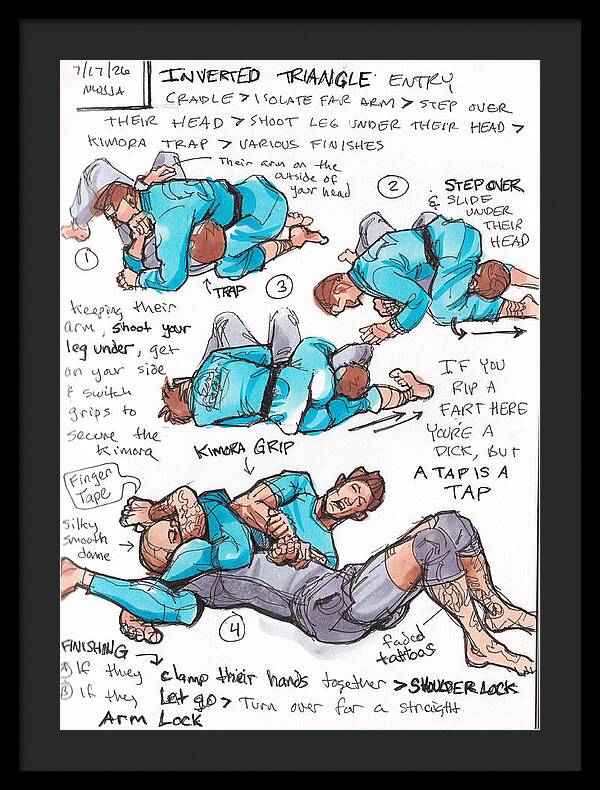 7/17/26
INVERTED TRIANGLE ENTRY
CRADLE > ISOLATE FAR ARM > STEP OVER
THEIR HEAD > SHOOT LEG UNDER THEIR HEAD >
KIMORA TRAP > VARIOUS FINISHES
Their arm on the
outside of
your head
1
TRAP
2
STEP OVER
& SLIDE
UNDER
THEIR
HEAD
3
keeping their
arm, shoot your
leg under, get
on your side
& switch
grips to
secure the
Kimora
KIMORA GRIP
IF YOU
RIP A
FART HERE
YOU'RE A
DICK, BUT
A TAP IS A
TAP
Finger
Tape
silky
smooth
dome
4
faded
tattoos
FINISHING
If they clamp their hands together > SHOULDER LOCK
If they Let go > Turn over for a straight
Arm Lock